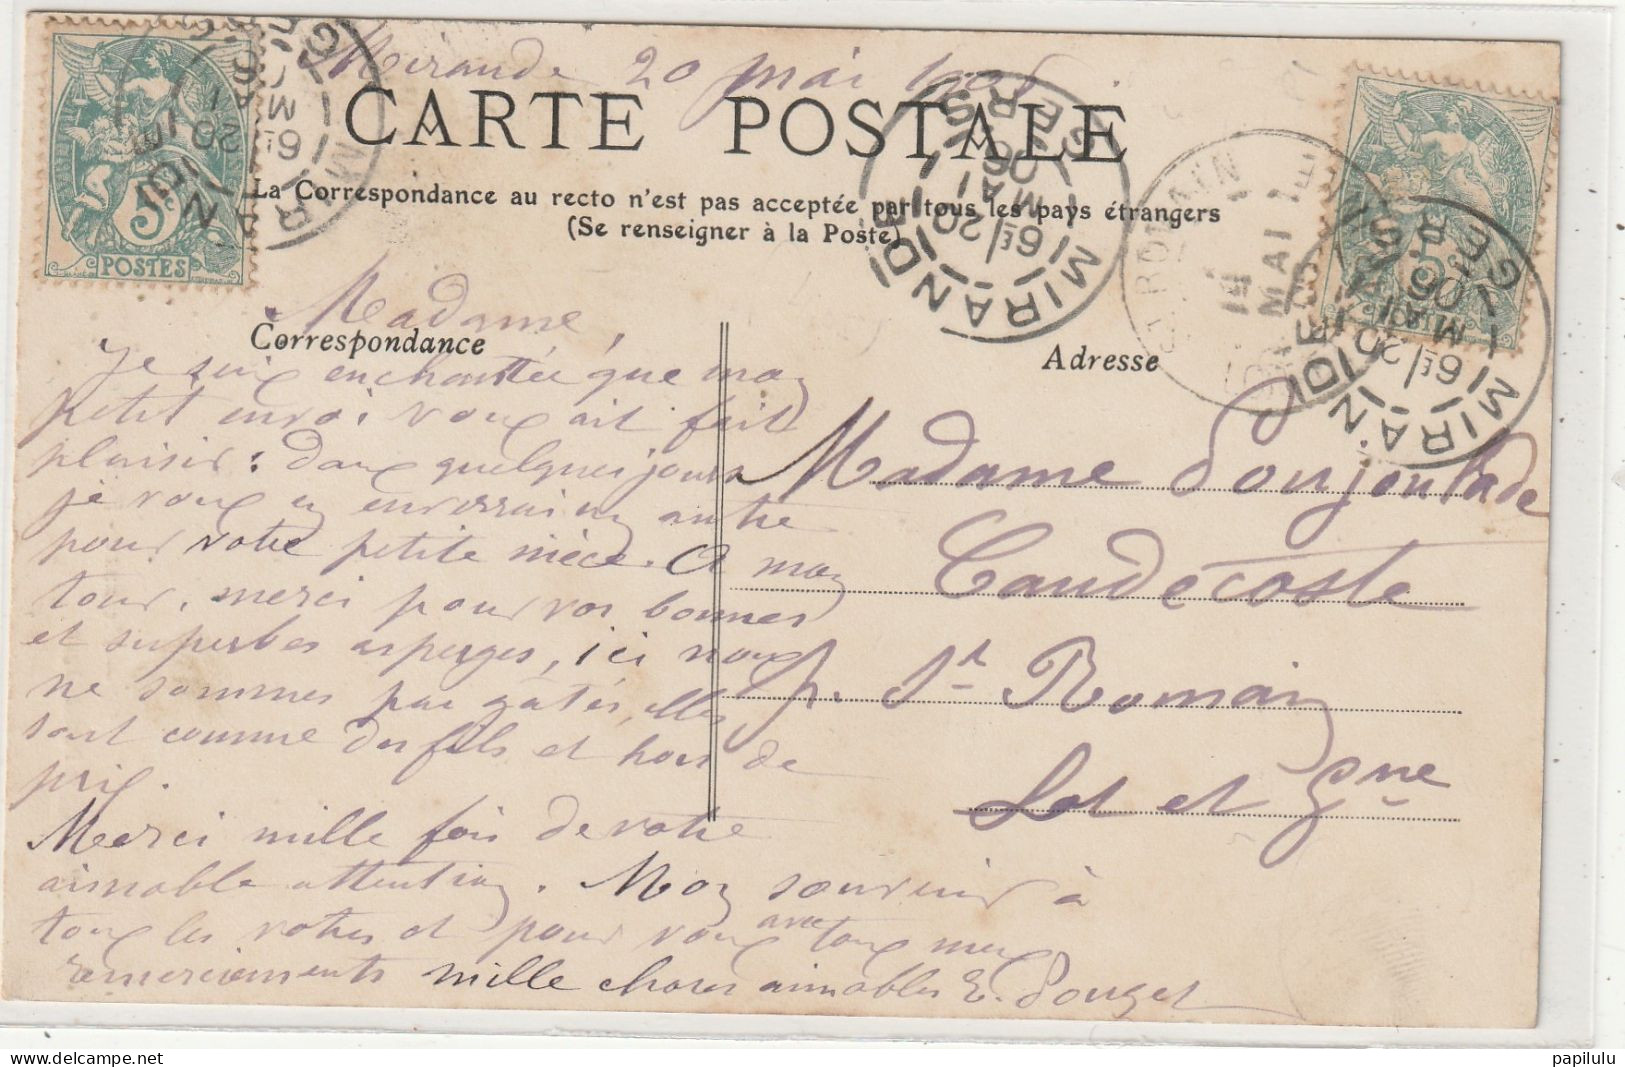 Mirande 20 mai 1906
CARTE POSTALE
La Correspondance au recto n'est pas acceptée par tous les pays étrangers
(Se renseigner à la Poste)
5c
POSTES
MIRANDE
GERS
6E
20 MAI
06
MIRANDE
GERS
6E
20 MAI
06
ST ROMAIN
MAI
MIRANDE
GERS
6E
20 MAI
06
Correspondance
Adresse
Madame,
Je suis enchantée que mon
petit envoi vous ait fait
plaisir : dans quelques jours
je vous en enverrai un autre
pour votre petite nièce. A mon
tour, merci pour vos bonnes
et superbes asperges, ici nous
ne sommes pas gâtés, elles
sont comme des fils et hors de
prix.
Merci mille fois de votre
aimable attention. Mon souvenir à
tous les votres et pour vous avec tous mes
remerciements mille choses aimables E. Pouget
Madame Poujoulade
Caudecoste
p. St Romain
Lot et Gne
papilulu